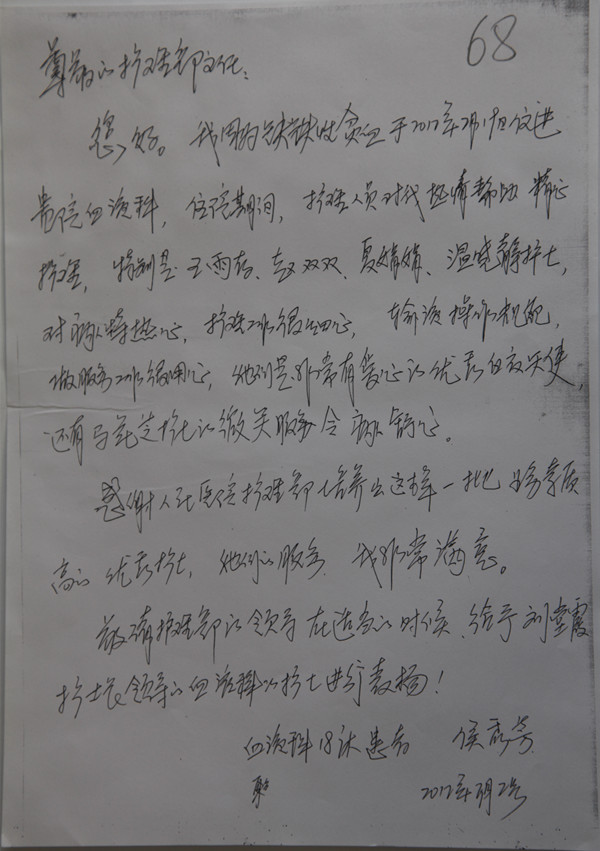 68
尊敬的护理部主任:
您好。我因为缺铁性贫血于2012年2月 住进
贵院血液科,住院期间,护理人员对我热情帮助 精心
护理,特别是 王雨 、赵双双、夏娟娟、温晓静护士,
对病人特热心,护理工作很细心, 输液操作 ,
做服务工作很用心,她们是非常有爱心的优秀白衣天使,
还有马 护士的微笑服务令病人舒心。
感谢人民医院护理部培养出这样一批 素质
高的优秀护士,她们的服务 我非常满意。
敬请护理部的领导在适当的时候,给予刘 霞
护士长领导的血液科的护士进行表扬!
血液科18床患者 侯秀芳
2012年3月2号